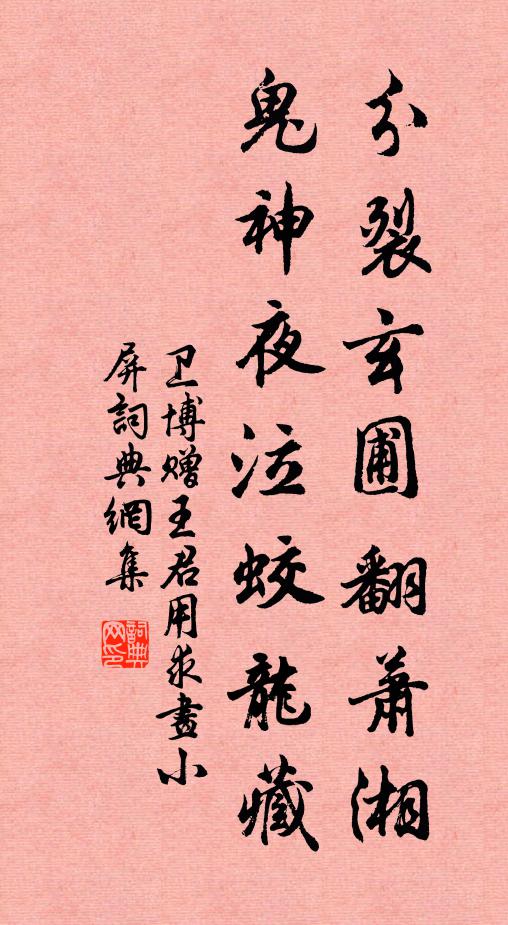 分裂玄圃翻萧湘
鬼神夜泣蛟龍藏
卫博赠王君用求畫小
屏詞典網集
詞典网印